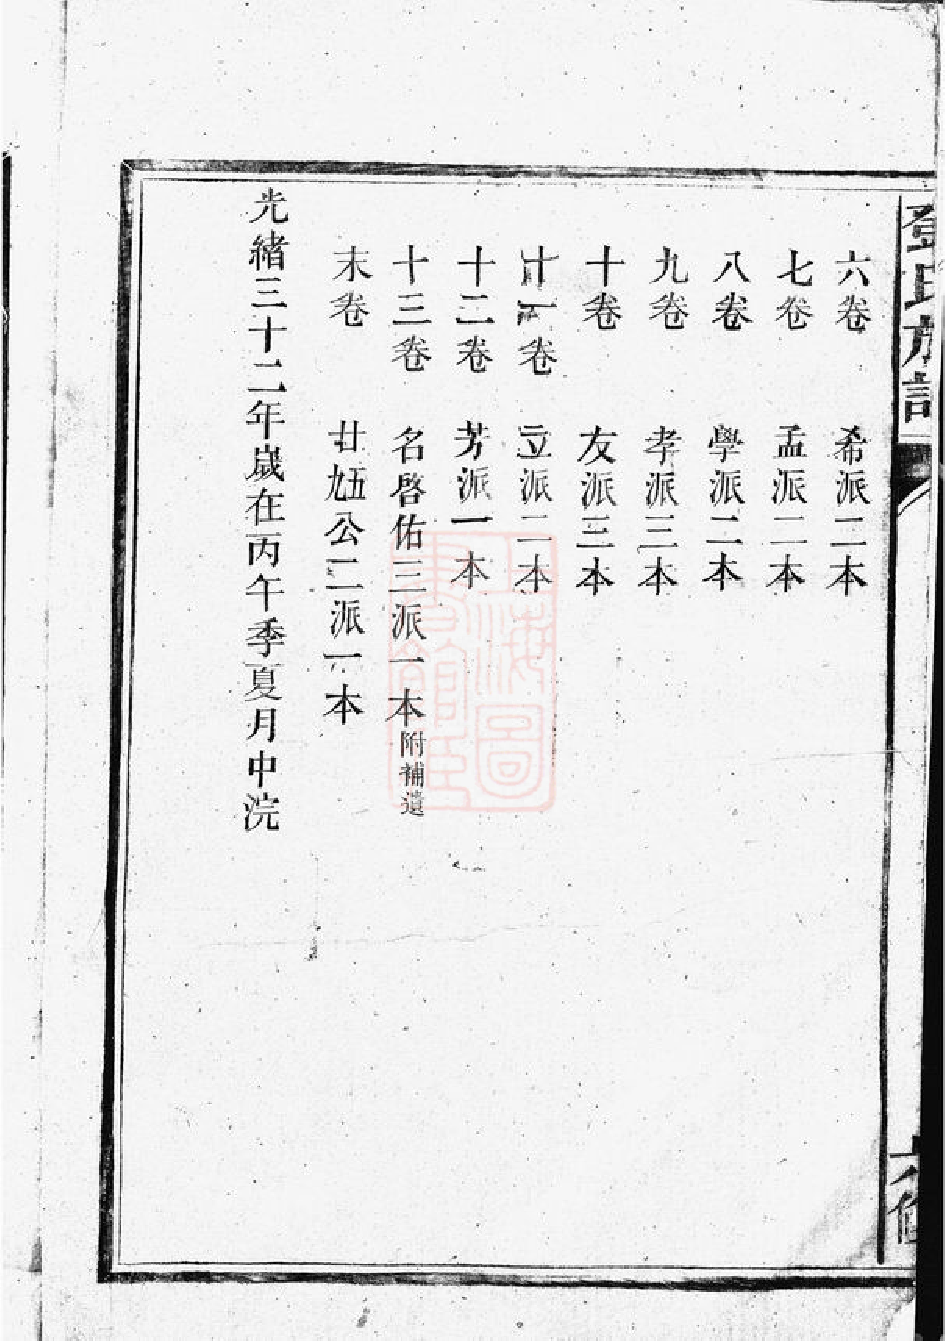 鄧氏族譜
六修
六卷 希派二本
七卷 孟派二本
八卷 學派二本
九卷 孝派三本
十卷 友派三本
十一卷 立派二本
十二卷 芳派一本
十三卷 名啓佑三派一本附補遺
末卷 廿九五公二派一本
光緒三十二年歲在丙午季夏月中浣
上海圖
書館臧